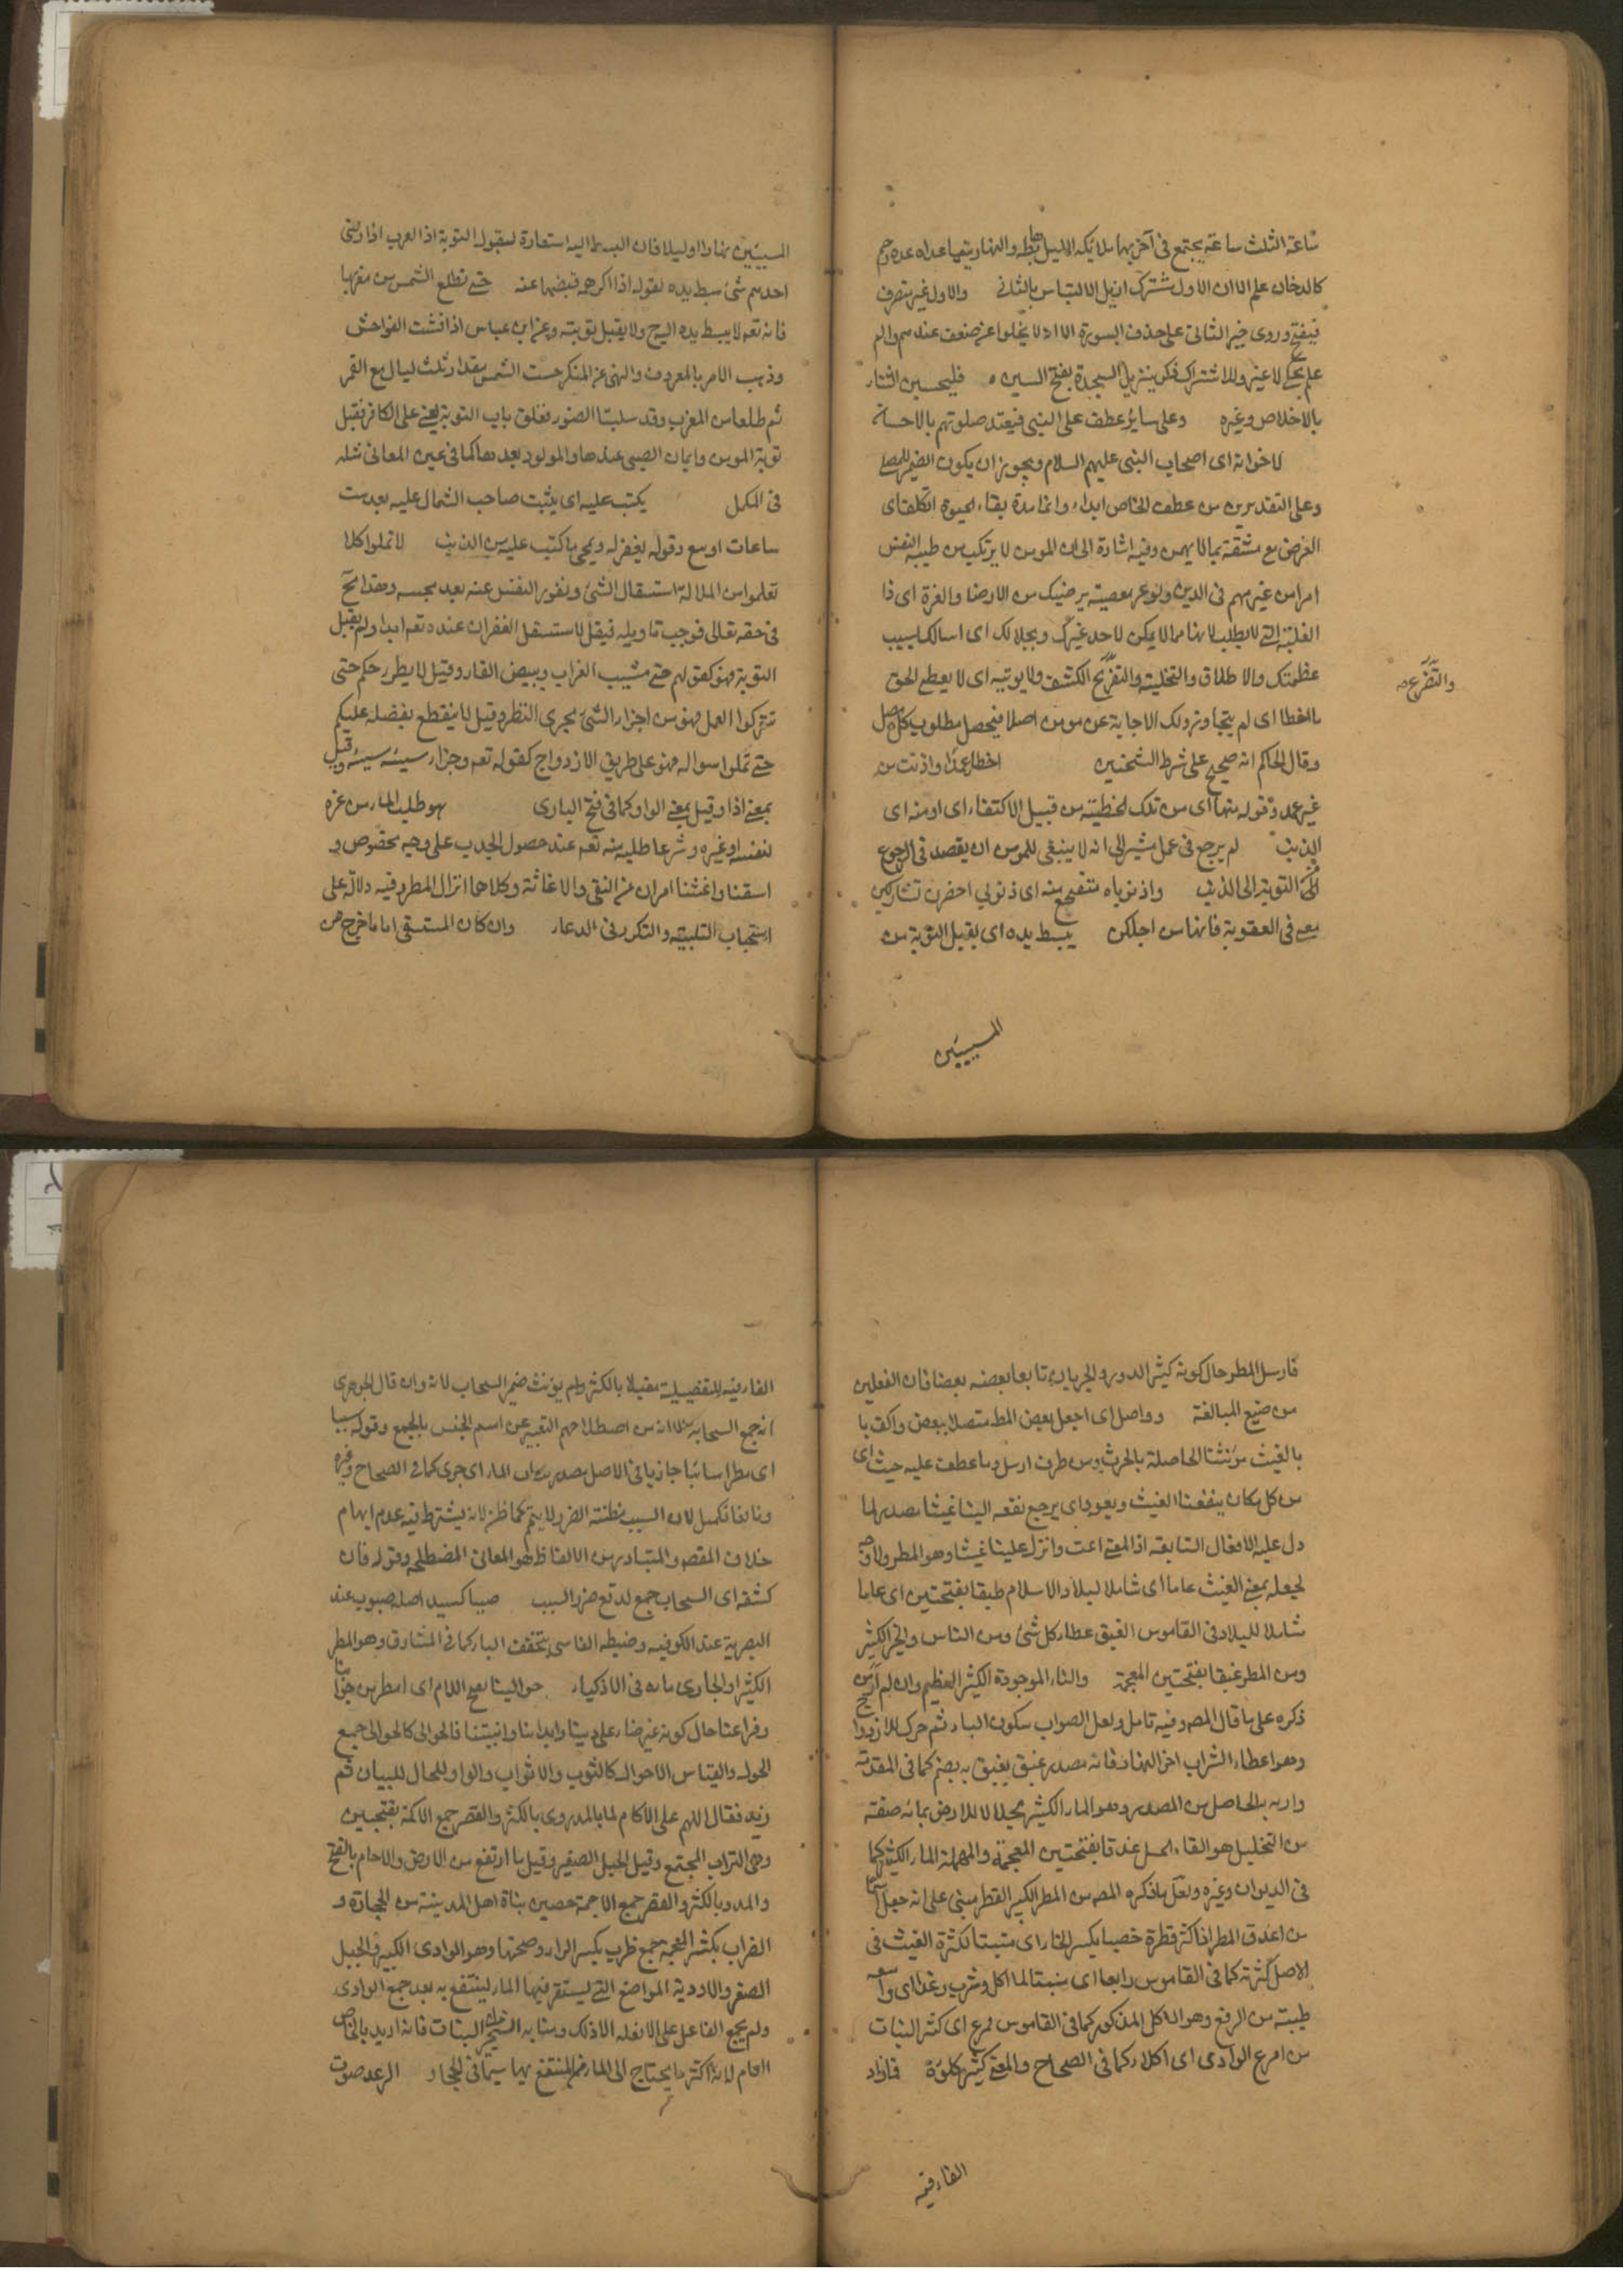 ساعة الثلث ساعة يجتمع في آخر بها ملائكة الليل والنهار
كالدخان علم الا ان الاول مشترك الالتباس بالثاني والاول غير متصرف
فبفتح وروى خير الثاني على حذف السورة الا انه لا يخلوا عن ضعف عندهم والم
علم لا غير وللاشتراك تنزيل السجدة بفتح السين فليحسن الثناء
بالاخلاص وغيره وعلى سائر عطف على النبي فيقتد صلوتهم بالاحسان
لاخوانه اى اصحاب النبي عليهم السلام ويجوز ان يكون الضمير للمصلى
وعلى التقديرين من عطف الخاص ابدا وانما مدة بقاء الحيوة اتكلف اى
اتعرض مع مشقة بما لا يهمن وفيه اشارة الى ان المومن لا يرتكب من طيبة النفس
امرا من غير مهم في الدين ولو غير معصية يرضيك من الارضا والعزة اى ذا
الغلبة التي لا يطلب لانها مما لا يمكن لاحد غيرك وبجلالك اى اسالك بسبب
عظمتك والاطلاق والتخلية والتفريج الكشف ولا يوتيه اى لا يعطى الحق
والتفرع صح
بالخطا اى لم يتجاوز ولك الاجابة عن مومن اصلا فيحصل مطلوب كل
وقال الحاكم انه صحيح على شرط الشيخين اخطا عمدا واذنبت من
غير عمد وقوله منها اى من تلك الخطيئة من قبيل الاكتفاء اى او منه اى
الذنب لم يرجع في عمل يشير الى انه لا ينبغي للمومن ان يقصد في الرجوع
الى التوبة الى الذنب واذنوباه تفجع منه اى ذنوبي احضرن تشاركين
معي في العقوبة فانها من اجلكن يبسط يده اى يقبل التوبة من
المسيئين
المسيئين نهارا او ليلا فان البسط اليد استعارة لقبول التوبة اذ العرب اذا رضي
احدهم شئ بسط يده لقوله اذا اكرهه قبضها عنه حتى تطلع الشمس من مغربها
فانه تعه لا يبسط يده اليه ولا يقبل توبته وعن ابن عباس اذا فشت الفواحش
وذهب الامر بالمعروف والنهى عن المنكر حبست الشمس مقدار ثلث ليال مع القمر
ثم طلعا من المغرب وقد سلبتا الضوء فغلق باب التوبة يعني على الكافر فتقبل
توبة المومن وايمان الصبي عندها والمولود بعدها كما في عين المعاني مثله
في المكمل يكتب عليه اى يثبت صاحب الشمال عليه بعد ست
ساعات اوسع وقوله يغفر له ويمحى ما كتب عليه من الذنب لا تملوا كلا
تعلموا من الملالة استثقال الشئ ونفور النفس عنه بعد محبته وهذا مح
في حقه تعالى فوجب تاويله فيقل لا يستثقل الغفران عنده تعه ابدا ولم يقبل
التوبة فهو كقولهم حتى يشيب الغراب ويبيض القار وقيل لا يطر رحمكم حتى
تتركوا العمل فهو من اجراء الشئ مجرى النظر وقيل لا ينقطع بفضله عليكم
حتى تملوا سواله فهو على طريق الازدواج كقوله تعه وجزاء سيئة سيئة وقيل
بمعنى اذا وقيل بمعنى الواو كما في فتح البارى هو طلب الماء من غيره
لنفسه او غيره وشرعا طلبه منه تعه عند حصول الجدب على وجه مخصوص و
اسقنا واغثنا امران من السقي والاغاثة وكلاهما انزال المطر وفيه دلالة على
استحباب التلبية والتكرر في الدعاء وان كان المستسقى اماما خرج من
فارسل المطر حال كونه كثير الدور والجريان تابعا بعضه بعضا فان الفعلين
من صيغ المبالغة وواصل اى اجعل بعض المطر متصلا ببعض واكف با
بالغيث مؤنثنا الحاصلة بالحرث ومن طرف ارسل وما عطف عليه حيث اى
من كل مكان ينفعنا الغيث ويعود اى يرجع نفعه الينا غيثا مصدر لما
دل عليه الافعال السابقة اذ المعنى اغث وانزل علينا غيثا وهو المطر ولا وجه
لجعله بمعنى الغيث عاما اى شاملا ليلاد الاسلام طبقا بفتحتين اى عاما
شاملا للبلاد في القاموس الغبق عطاء كل شئ ومن الناس والخير الكثير
ومن المطر غبقا بفتحتين المعجمة والثناء الموجودة الكثير العظيم وان لم ار من
ذكره على ما قال المصه وفيه تامل ولعل الصواب سكون الباء ثم حرك للازدواج
وهو اعطاء الشراب اخر النهار فانه مصدر غبق يغبق به بضم كما في المقدمة
واريد به الحاصل من المصدر وهو الماء الكثير مجللا للارض بمائه صفة
من التخليل هو القاء الجل غدقا بفتحتين المعجمة والمهملة الماء الكثير كما
في الديوان وغيره ولعل ما ذكره المصه من المطر الكبير القطر مبني على انه جعل اسما
من اغدق المطر اذا كثر قطره خصبا بكسر الخاء اى مثبتا لكثرة الغيث في
الاصل كثرته كما في القاموس رابعا اى منبتا لما اكل وشرب رغدا اى واسعة
طيبته من الرفع وهو الاكل المذكور كما في القاموس مرع اى كثير النبات
من امرع الوادى اى اكلاء كما في الصحاح والمعنى كثير كلوه فازاد
الفارقيه
الفارقيه للتفضيلية مقبلا بالكثر ولم يؤنث ضمير السحاب لانه وان قال الجوهرى
انه جمع السحابة الا انه من اصطلاحهم التعبير عن اسم الجنس بالجمع وقوله سيبا
اى مطرا سائبا جاريا في الاصل مصدر ساب الماء اى جرى كما في الصحاح وغيره
ونافعا تكميل لان السيب مظنة الضرر لا يتم كما ظن لانه يشترط فيه عدم ايهام
خلاف المقصه والمتبادر من الالفاظ هو المعاني المصطلحة وقوله فان
كشفه اى السحاب جمع لدفع ضرر السيب صيبا كسيد اصله صيوب عند
البصرية عند الكوفيه وضبطه الفاسي بتخفف الباء كما في المشارق وهو المطر
الكثير او الجارى ماءه في الاذكياء حوالينا بفتح اللام اى امطر من جوانبنا
وفراعنا حال كونه غير ضار على ديننا وابداننا وابنيتنا فالحوالى كالحوالى جمع
الحول والقياس الاحوال كالثوب والاثواب والواو للحال للبيان ثم
زيد فقال اللهم على الآكام لما بالمد روى بالكثر والقصر جمع الاكمة بفتحتين
وهى التراب المجتمع وقيل الجبل الصغير وقيل ما ارتفع من الارض والاجام بالفتح
والمد وبالكثر والقصر جمع الاجمة حصين بناه اهل المدينة من الحجارة و
الضراب بكسر المعجمة جمع ظرب بكسر الراء وصحتها وهو الوادى الكبير والجبل
الصغير والاودية المواضع التي يستقر فيها الماء لينتفع به بعد جمع الوادى
ولم يجمع الفاعل على الافعله الا ذلك ومنابه الشجر النبات فانه اريد بالخاص
العام لانه اكثر ما يحتاج الى الماء المنتفع بها سيما في الحجاز الرعد صوت